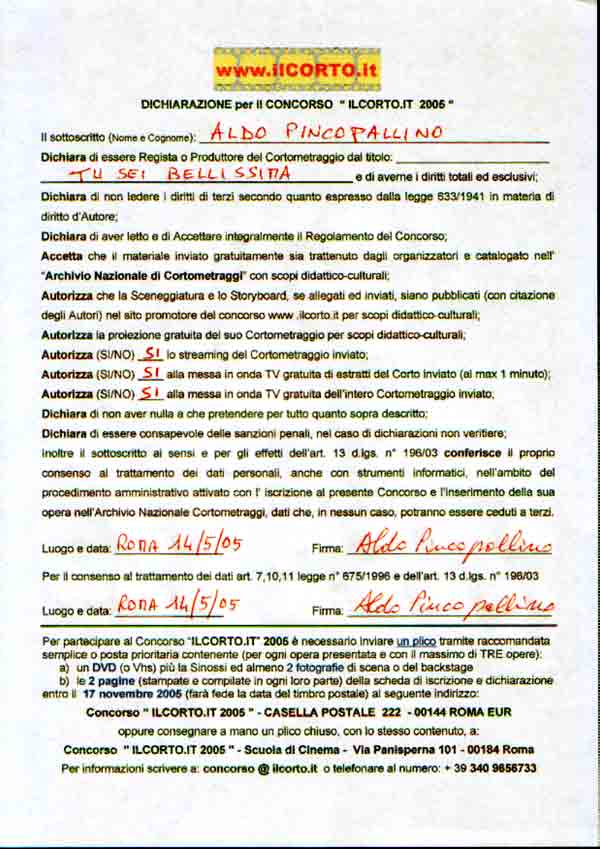 www.ilCORTO.it
DICHIARAZIONE per il CONCORSO " ILCORTO.IT 2005 "
Il sottoscritto (Nome e Cognome): ALDO PINCOPALLINO
Dichiara di essere Regista o Produttore del Cortometraggio dal titolo:
TU SEI BELLISSIMA e di averne i diritti totali ed esclusivi;
Dichiara di non ledere i diritti di terzi secondo quanto espresso dalla legge 633/1941 in materia di
diritto d'Autore;
Dichiara di aver letto e di Accettare integralmente il Regolamento del Concorso;
Accetta che il materiale inviato gratuitamente sia trattenuto dagli organizzatori e catalogato nell'
"Archivio Nazionale di Cortometraggi" con scopi didattico-culturali;
Autorizza che la Sceneggiatura e lo Storyboard, se allegati ed inviati, siano pubblicati (con citazione
degli Autori) nel sito promotore del concorso www .ilcorto.it per scopi didattico-culturali;
Autorizza la proiezione gratuita del suo Cortometraggio per scopi didattico-culturali;
Autorizza (SI/NO) SI lo streaming del Cortometraggio inviato;
Autorizza (SI/NO) SI alla messa in onda TV gratuita di estratti del Corto inviato (al max 1 minuto);
Autorizza (SI/NO) SI alla messa in onda TV gratuita dell'intero Cortometraggio inviato;
Dichiara di non aver nulla a che pretendere per tutto quanto sopra descritto;
Dichiara di essere consapevole delle sanzioni penali, nel caso di dichiarazioni non veritiere;
Inoltre il sottoscritto ai sensi e per gli effetti dell'art. 13 d.lgs. n° 196/03 conferisce il proprio
consenso al trattamento dei dati personali, anche con strumenti informatici, nell'ambito del
procedimento amministrativo attivato con l' iscrizione al presente Concorso e l'inserimento della sua
opera nell'Archivio Nazionale Cortometraggi, dati che, in nessun caso, potranno essere ceduti a terzi.
Luogo e data: ROMA 14/5/05 Firma: Aldo Pincopallino
Per il consenso al trattamento dei dati art. 7,10,11 legge n° 675/1996 e dell'art. 13 d.lgs. n° 196/03
Luogo e data: ROMA 14/5/05 Firma: Aldo Pincopallino
Per partecipare al Concorso "ILCORTO.IT" 2005 è necessario inviare un plico tramite raccomandata
semplice o posta prioritaria contenente (per ogni opera presentata e con il massimo di TRE opere):
a) un DVD (o Vhs) più la Sinossi ed almeno 2 fotografie di scena o del backstage
b) le 2 pagine (stampate e compilate in ogni loro parte) della scheda di iscrizione e dichiarazione
entro il 17 novembre 2005 (farà fede la data del timbro postale) al seguente indirizzo:
Concorso " ILCORTO.IT 2005 " - CASELLA POSTALE 222 - 00144 ROMA EUR
oppure consegnare a mano un plico chiuso, con lo stesso contenuto, a:
Concorso " ILCORTO.IT 2005 " - Scuola di Cinema - Via Panisperna 101 - 00184 Roma
Per informazioni scrivere a: concorso @ ilcorto.it o telefonare al numero: + 39 340 9656733